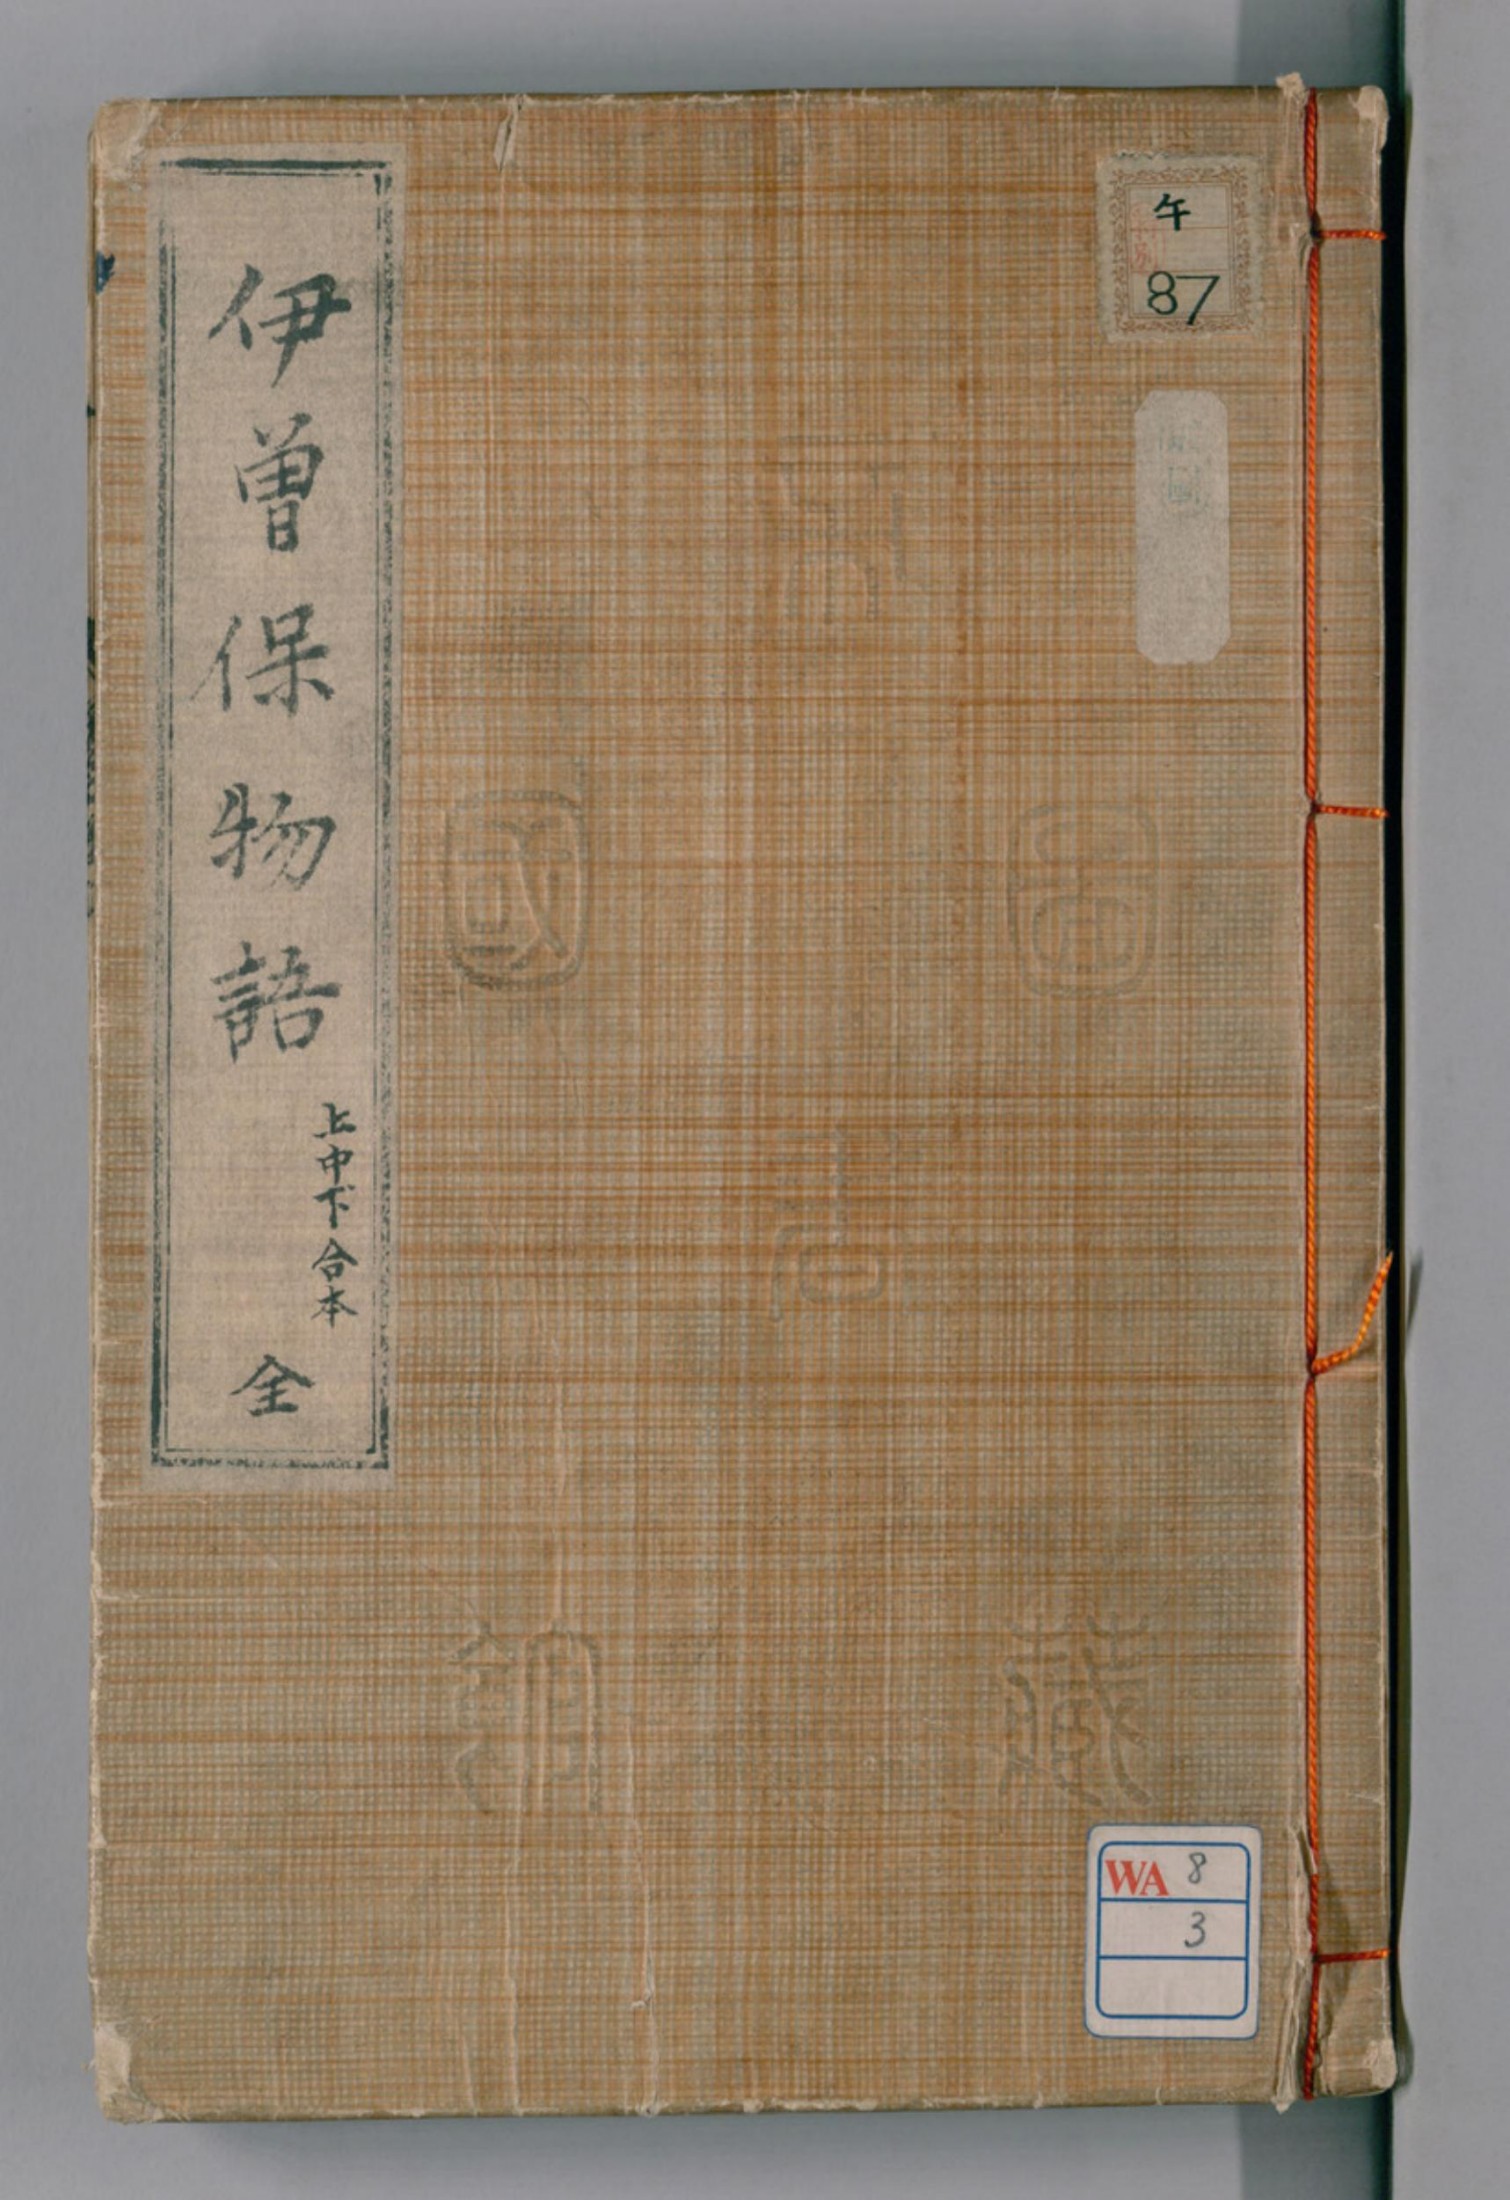 伊曽保物語
上中下合本
全
午
87
WA 8
3